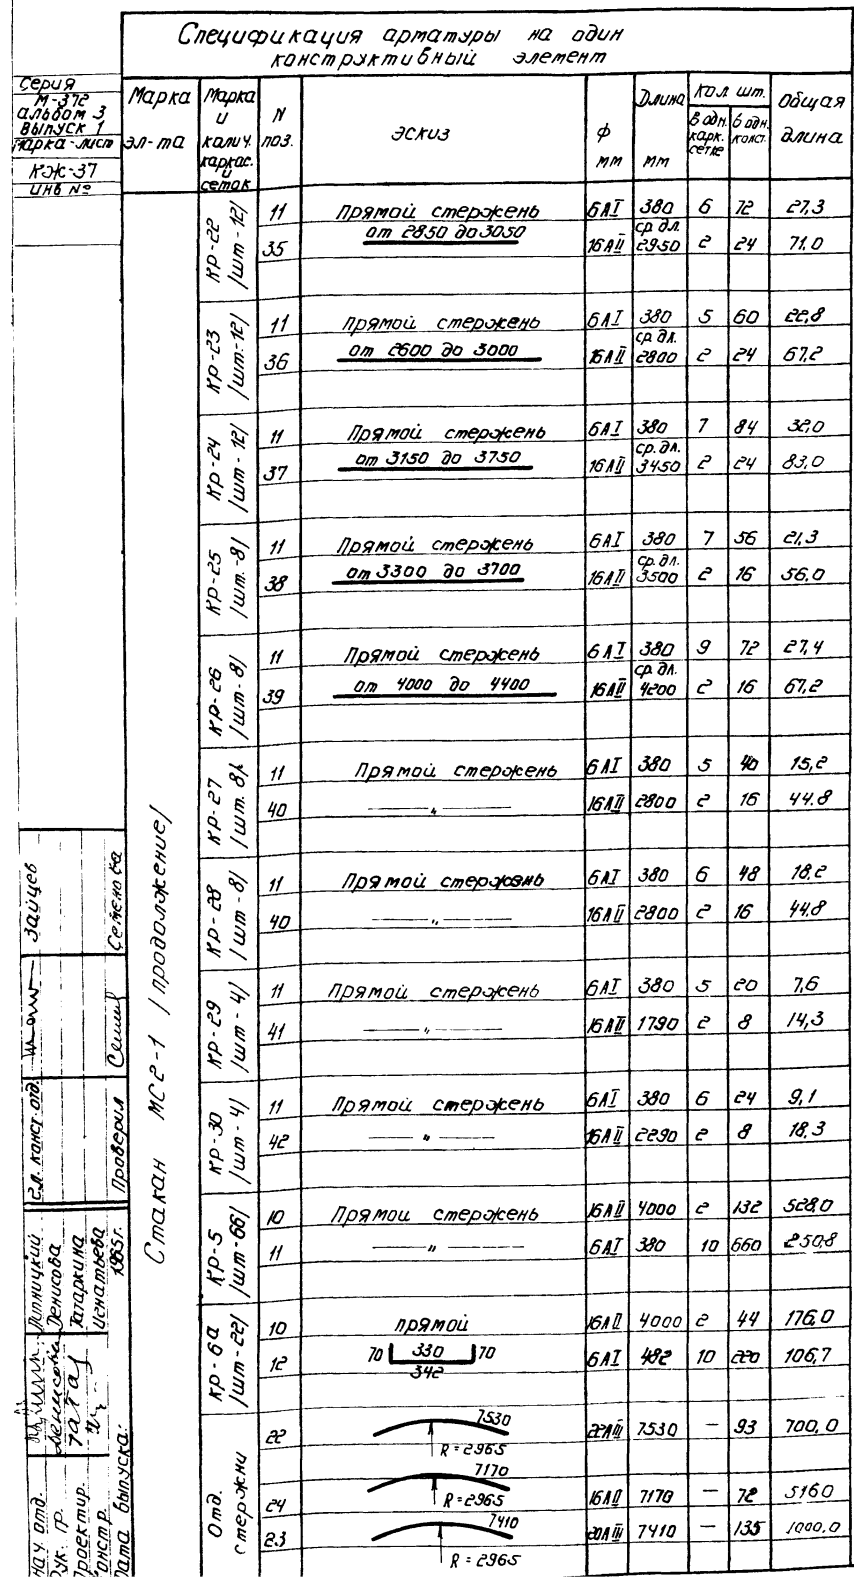 Спецификация арматуры на один
конструктивный элемент
Серия
М-372
альбом 3
Выпуск 1
марка-лист
КЖ-37
инв №
Марка эл-та
Марка и колич. каркас. и сеток
N поз.
эскиз
ф мм
Длина мм
Кол. шт.
в одн. карк. сетке
в одн. конст.
Общая длина
Стакан МС2-1 /продолжение/
КР-22 /шт-12/
11 Прямой стержень 6АI 380 6 72 27,3
35 от 2850 до 3050 16АII ср. дл. 2950 2 24 71,0
КР-23 /шт.-12/
11 Прямой стержень 6АI 380 5 60 22,8
36 от 2600 до 3000 16АII ср. дл. 2800 2 24 67,2
КР-24 /шт-12/
11 Прямой стержень 6АI 380 7 84 32,0
37 от 3150 до 3750 16АII ср. дл. 3450 2 24 83,0
КР-25 /шт.-8/
11 Прямой стержень 6АI 380 7 56 21,3
38 от 3300 до 3700 16АII ср. дл. 3500 2 16 56,0
КР-26 /шт-8/
11 Прямой стержень 6АI 380 9 72 27,4
39 от 4000 до 4400 16АII ср. дл. 4200 2 16 67,2
КР-27 /шт. 8/
11 Прямой стержень 6АI 380 5 40 15,2
40 —"— 16АII 2800 2 16 44.8
КР-28 /шт-8/
11 Прямой стержень 6АI 380 6 48 18.2
40 —"— 16АII 2800 2 16 44,8
КР-29 /шт-4/
11 Прямой стержень 6АI 380 5 20 7,6
41 —"— 16АII 1790 2 8 14,3
КР-30 /шт-4/
11 Прямой стержень 6АI 380 6 24 9,1
42 —"— 16АII 2290 2 8 18,3
КР-5 /шт-66/
10 Прямой стержень 16АII 4000 2 132 528,0
11 —"— 6АI 380 10 660 250,8
КР-6а /шт-22/
10 прямой 16АII 4000 2 44 176,0
12 70 330 70 342 6АI 482 10 220 106,7
Отд. стержни
22 7530 R=2965 22АIII 7530 — 93 700,0
24 7170 R=2965 16АII 7170 — 72 516,0
23 7410 R=2965 20АIII 7410 — 135 1000,0
Зайцев
Семенова
Гл. конст. отд.
Проверил
Липницкий
Денисова
Татаркина
Игнатьева
1965г.
Нач. отд.
Рук. гр.
Проектир.
Констр.
Дата выпуска: